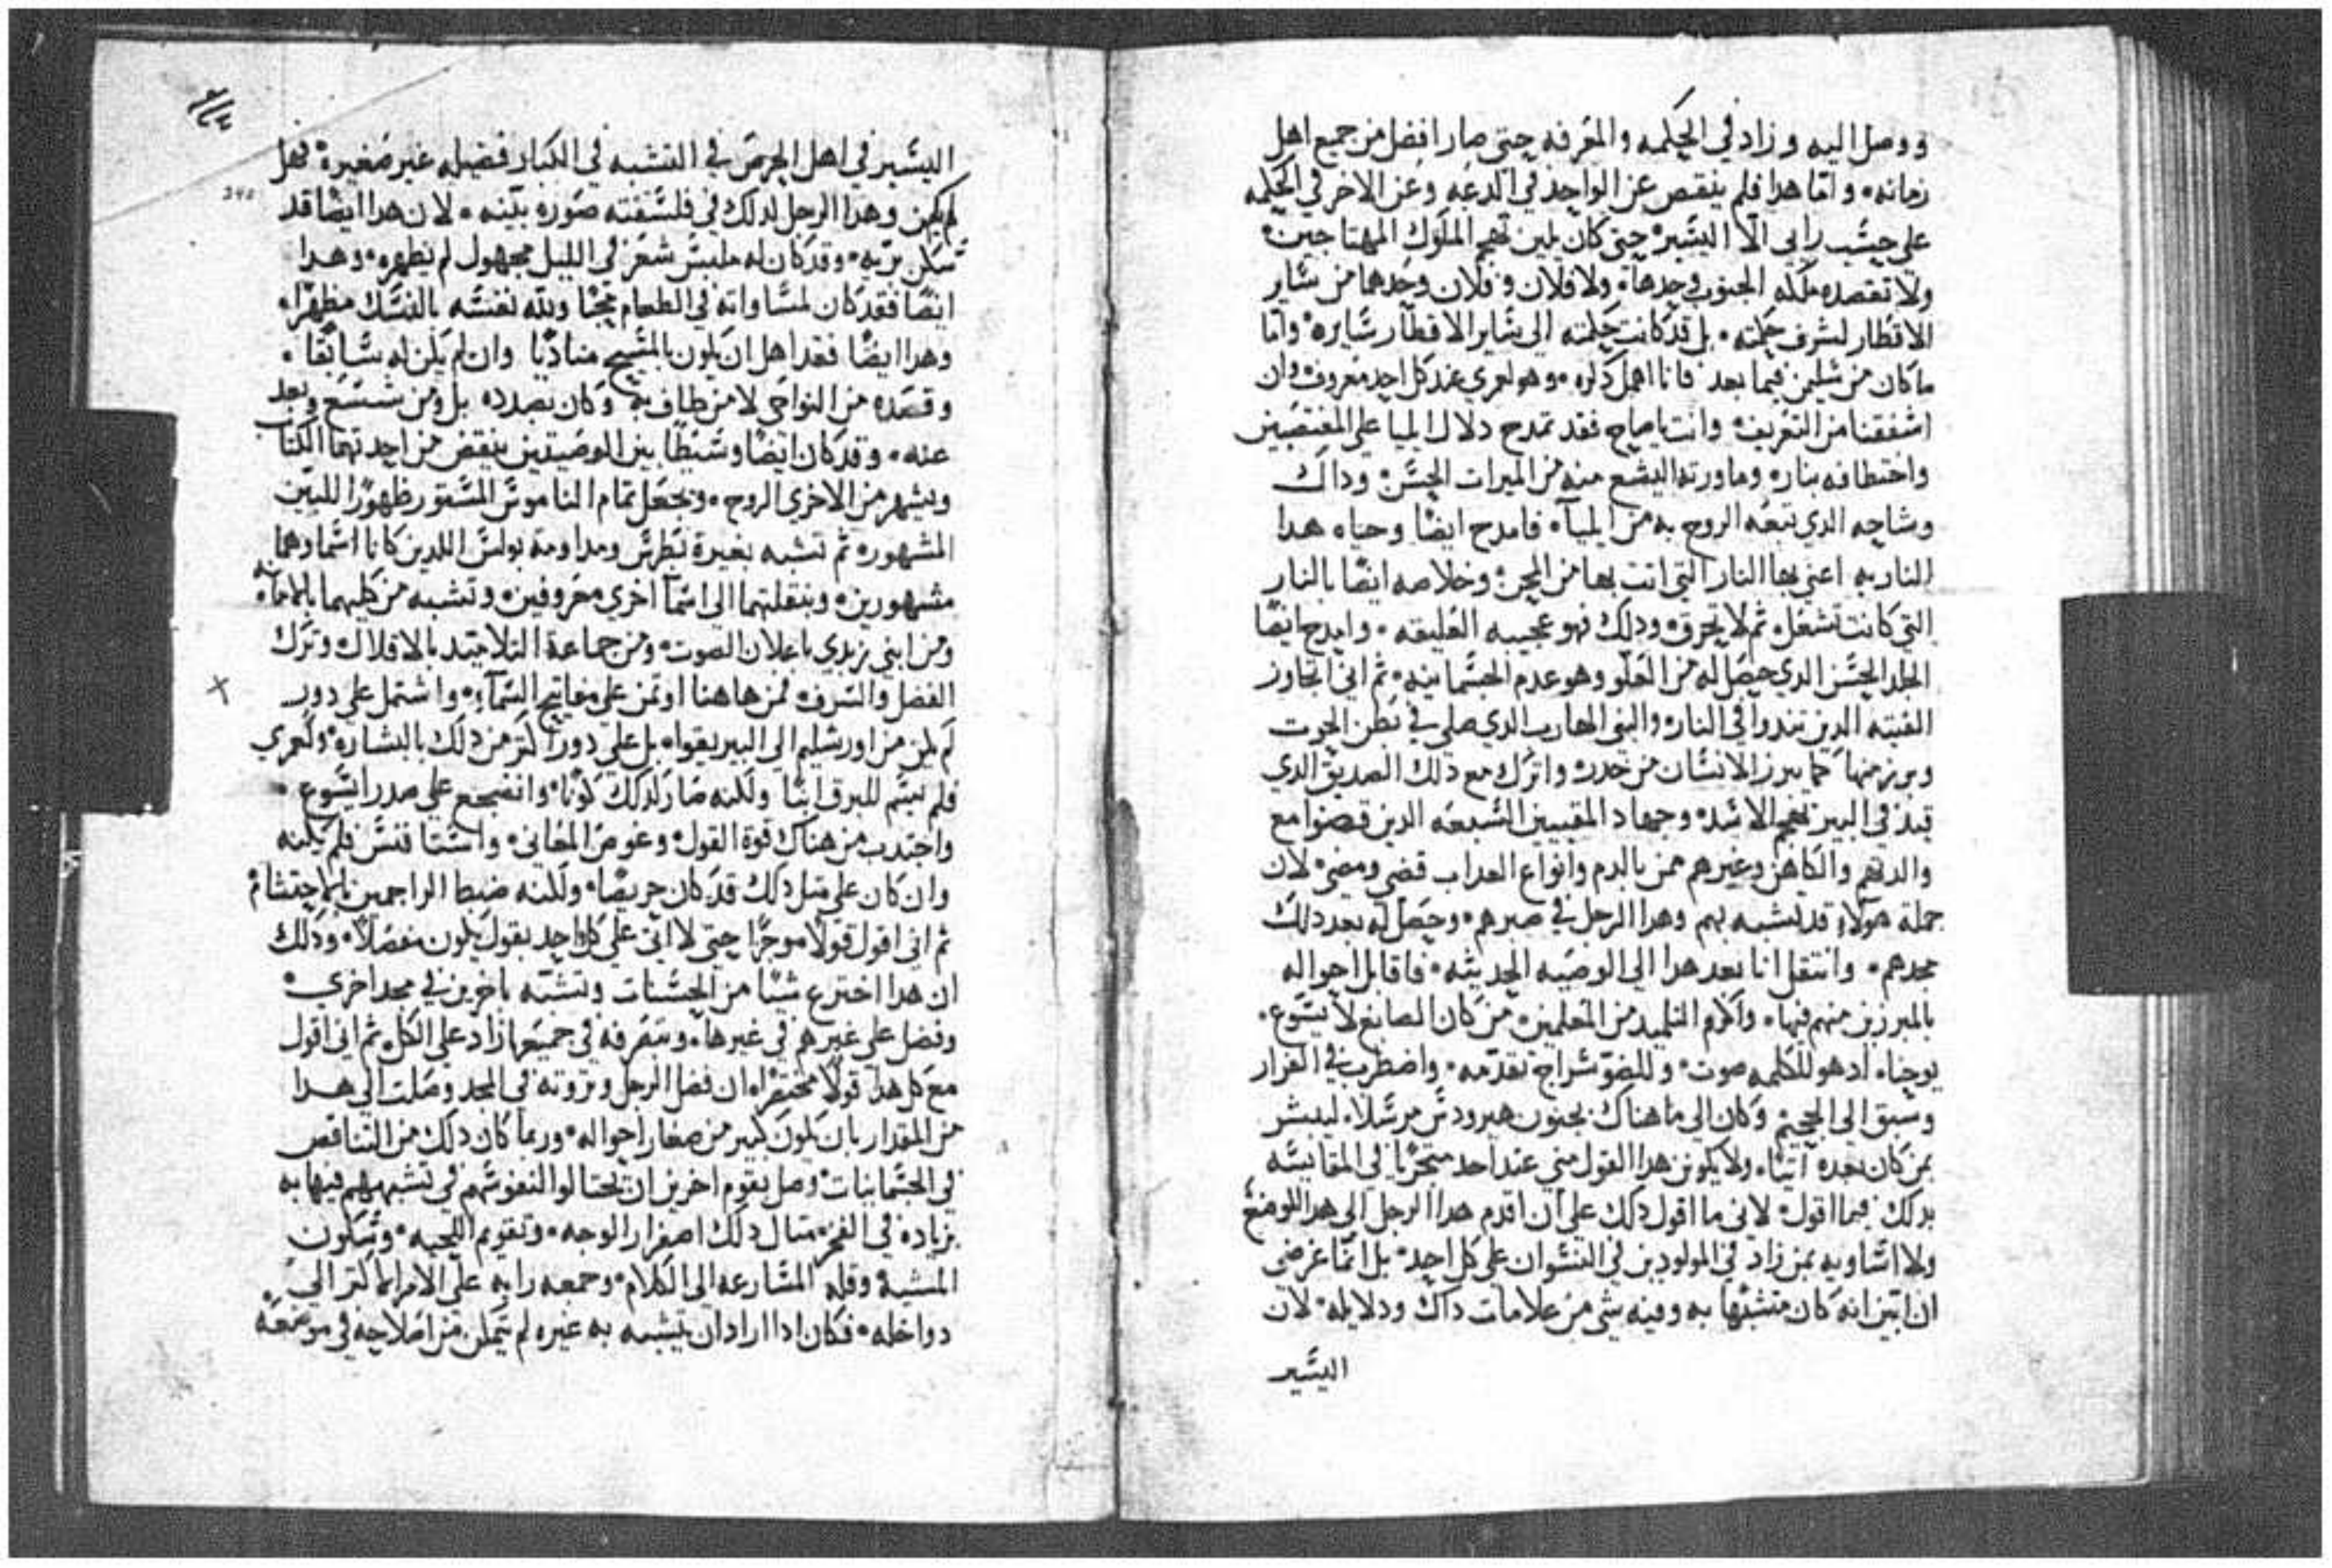 ووصل اليه وزاد في الحكمه والمعرفه حتى صار افضل من جميع اهل
زمانه. واما هدا فلم ينقص عن الواحد في الدعه وعن الاخر في الحكمه
على حسب رايى الا اليسير. حتى كان يلين تهجم الملوك المهتاجين.
ولا تقصده ملكه الجنوب وحدها. ولا فلان وفلان وحدهما من ساير
الاقطار لشرف حكمته. بل قد كانت حكمته الى ساير الاقطار سايره. واما
ما كان من سليمن فيما بعد فانا اهمل دكره. وهو لعمري عند كل احد معروف وان
اشفقنا من التعريف. وانت ياصاح فقد تمدح دلال ايليا على المغتصبين
واختطافه بنار. وما ورته اليشع منه من الميرات الحسن. وداك
وشاحه الدي تبعه الروح به من ايلياء. فامدح ايضا وحياه هدا
الناريه اعني بها النار التي اتت بها من المحن. وخلاصه ايضا بالنار
التي كانت تشعل. ثم لا تحرق. ودلك فهو عجيبه العليقه. وامدح ايضا
الجلد الحسن الدي حصل له من العلو وهو عدم الجسمانيه. ثم اني اتجاوز
الفتيه الدين تندوا في النار. والنبي الهارب الدي صلى في بطن الحوت
وبرز منها كما يبرز الانسان من خدره واترك مع دلك الصديق الدي
قيد في البير تهجم الاسد. وجهاد المقبيين السبعه الدين قضوا مع
والدتهم والكاهن وغيرهم ممن بالدم وانواع العداب قضى ومضى. لان
جملة هولاء قد تشبه بهم وهدا الرجل في صبرهم. وحصل له بعد دلك
مجدهم. وانتقل انا بعد هدا الى الوصيه الحديثه. فاقابل احواله
بالمبرزين منهم فيها. واكرم التلميد من المعلمين. من كان الصابغ لايسوع.
يوحنا. اد هو للكلمه صوت. وللضو سراج تقدمه. واضطرب في القرار
وسبق الى الجحيم وكان الى ما هناك بجنون هيرودس مرسلا. ليبشر
بمن كان بعده اتيا. ولا يكونن هدا القول مني عند احد متجريا في المقايسه
بدلك فيما اقول. لاني ما اقول دلك على ان اقدم هدا الرجل الى هدا الموضع
ولا اساويه بمن زاد في المولودين في النسوان على كل احد. بل انما غرضى
ان ابين انه كان متشبها به وفيه شي من علامات داك ودلايله. لان
اليسير
اليسير في اهل الحرص في التشبه في الكبار فضيله غير صغيره. فهل
لم يكن وهدا الرجل لدلك في فلسفته صوره بينه. لان هدا ايضا قد
سكن بريه. وقد كان له ملبس شعر في الليل مجهول لم يظهره. وهدا
ايضا فقد كان لمساواته في الطعام محبا وبله نفسه بالنسك مظهرا.
وهدا ايضا فقد اهل ان يكون بالمسيح مناديا وان لم يكن له سابقا.
وقصده من النواحى لا من طاف به وكان بصدده بل ومن شسع وبعد
عنه. وقد كان ايضا وسيطا بين الوصيتين ينقض من احدتهما الكتاب
ويشهر من الاخري الروح. ويجعل تمام الناموس المستور ظهورا للبين
المشهوره ثم تشبه بغيرة بطرس ومداومة بولس اللدين كانا اسماوهما
مشهورين. وبنقلتهما الى اسما اخري معروفين. وتشبه من كليهما بالامانه
ومن ابني زبدي باعلان الصوت. ومن جماعة التلاميد بالاقلال. وترك
الفضل والشرف فمن هاهنا اوتمن على مفاتيح السماء. واشتمل على دور
لم يكن من اورشليم الى اليريقوا. بل على دور اكتر من دلك بالبشاره. ولعمري
فلم يسم للبرق ابنا ولكنه صار لدلك كونا. وانضجع على صدر ايسوع.
واجتدب من هناك قوة القول. وغوص المعاني. واستافنس فلم يكنه
وان كان على متل دلك قد كان حريصا. ولكنه ضبط الراجمين بالاحتشام
ثم اني اقول قولا موجزا حتى لا اتي على كل واحد بقول يكون مفصلا. ودلك
ان هدا اخترع شيا من الحسنات وتشبه باخرين في مجد اخري.
وفضل على غيرهم في غيرها. وبتصرفه في جميعها زاد على الكل. ثم اني اقول
مع كل هدا قولا مختصرا. ان فضل الرجل وتروته في المجد وصلت الى هدا
من المقدار بان يكون كبير من صغار احواله. وربما كان دلك من التناقص
في الجسمانيات وصل بقوم اخرين ان يحتالوا لنفوسهم في تشبههم فيها به
بزياده في الفخر. متال دلك اصفرار الوجه. وتقويم اللحيه. وسكون
المشيه وقله المسارعه الى الكلام. وجمعه رايه على الامر الاكتر الى
دواخله. فكان ادا اراد ان يتشبه به غيره لم يتمكن من اصلاحه في موضعه